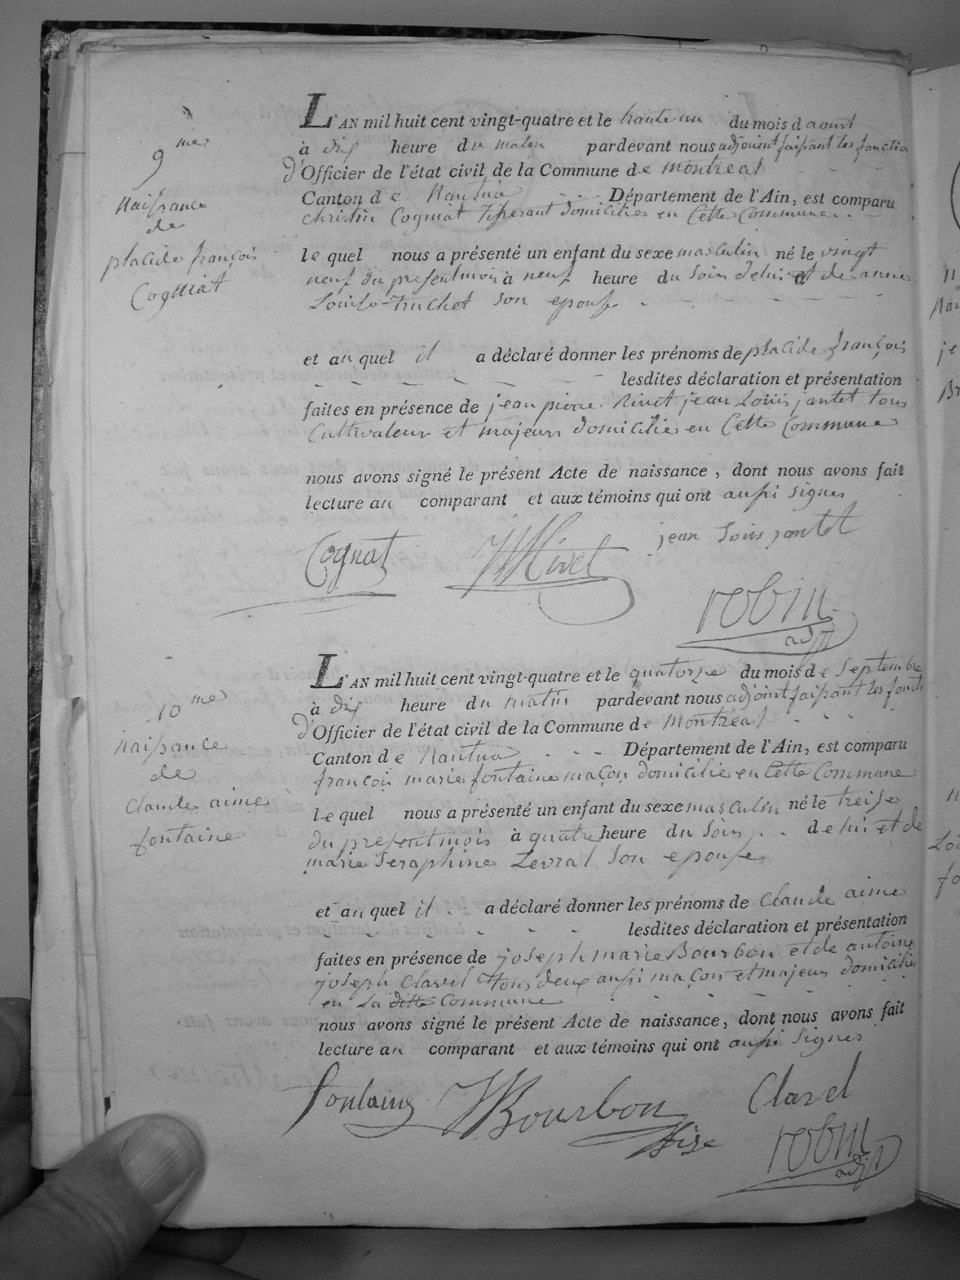 9me
Naissance
de
placide françois
Cogniat
L'AN mil huit cent vingt-quatre et le trante un du mois d aoust
à dix heure du matin pardevant nous adjoint faisant les fonction
d'Officier de l'état civil de la Commune de montreal
Canton de Nantua Département de l'Ain, est comparu
christin Cogniat Tisserant domicilies en Cette Commune
le quel nous a présenté un enfant du sexe masculin né le vingt
neuf du present mois à neuf heure du soir de lui et de anne
Truchet son epouse
et au quel il a déclaré donner les prénoms de placide françois
lesdites déclaration et présentation
faites en présence de jean pierre Nivet jean Louis jantet tous
Cultivateur et majeurs domicilies en Cette Commune
nous avons signé le présent Acte de naissance, dont nous avons fait
lecture au comparant et aux témoins qui ont aussi signes
Cognat Nivet jean Louis jantet
robin
adjt
10me
Naissance
de
Claude aime
fontaine
L'AN mil huit cent vingt-quatre et le quatorze du mois de Septembre
à dix heure du matin pardevant nous adjoint faisant les foncti
d'Officier de l'état civil de la Commune de Montreal
Canton de Nantua Département de l'Ain, est comparu
francois marie fontaine maçon domicilie en Cette Commune
le quel nous a présenté un enfant du sexe masculin né le treise
du present mois à quatre heure du soir de lui et de
marie Seraphine Levrat son epouse
et au quel il a déclaré donner les prénoms de Claude aime
lesdites déclaration et présentation
faites en présence de joseph marie Bourbon et de antoine
joseph Clavel tous deux aussi maçon et majeur domicilies
en La ditte Commune
nous avons signé le présent Acte de naissance, dont nous avons fait
lecture au comparant et aux témoins qui ont aussi signes
fontaine Bourbon Clavel
robin
adjt